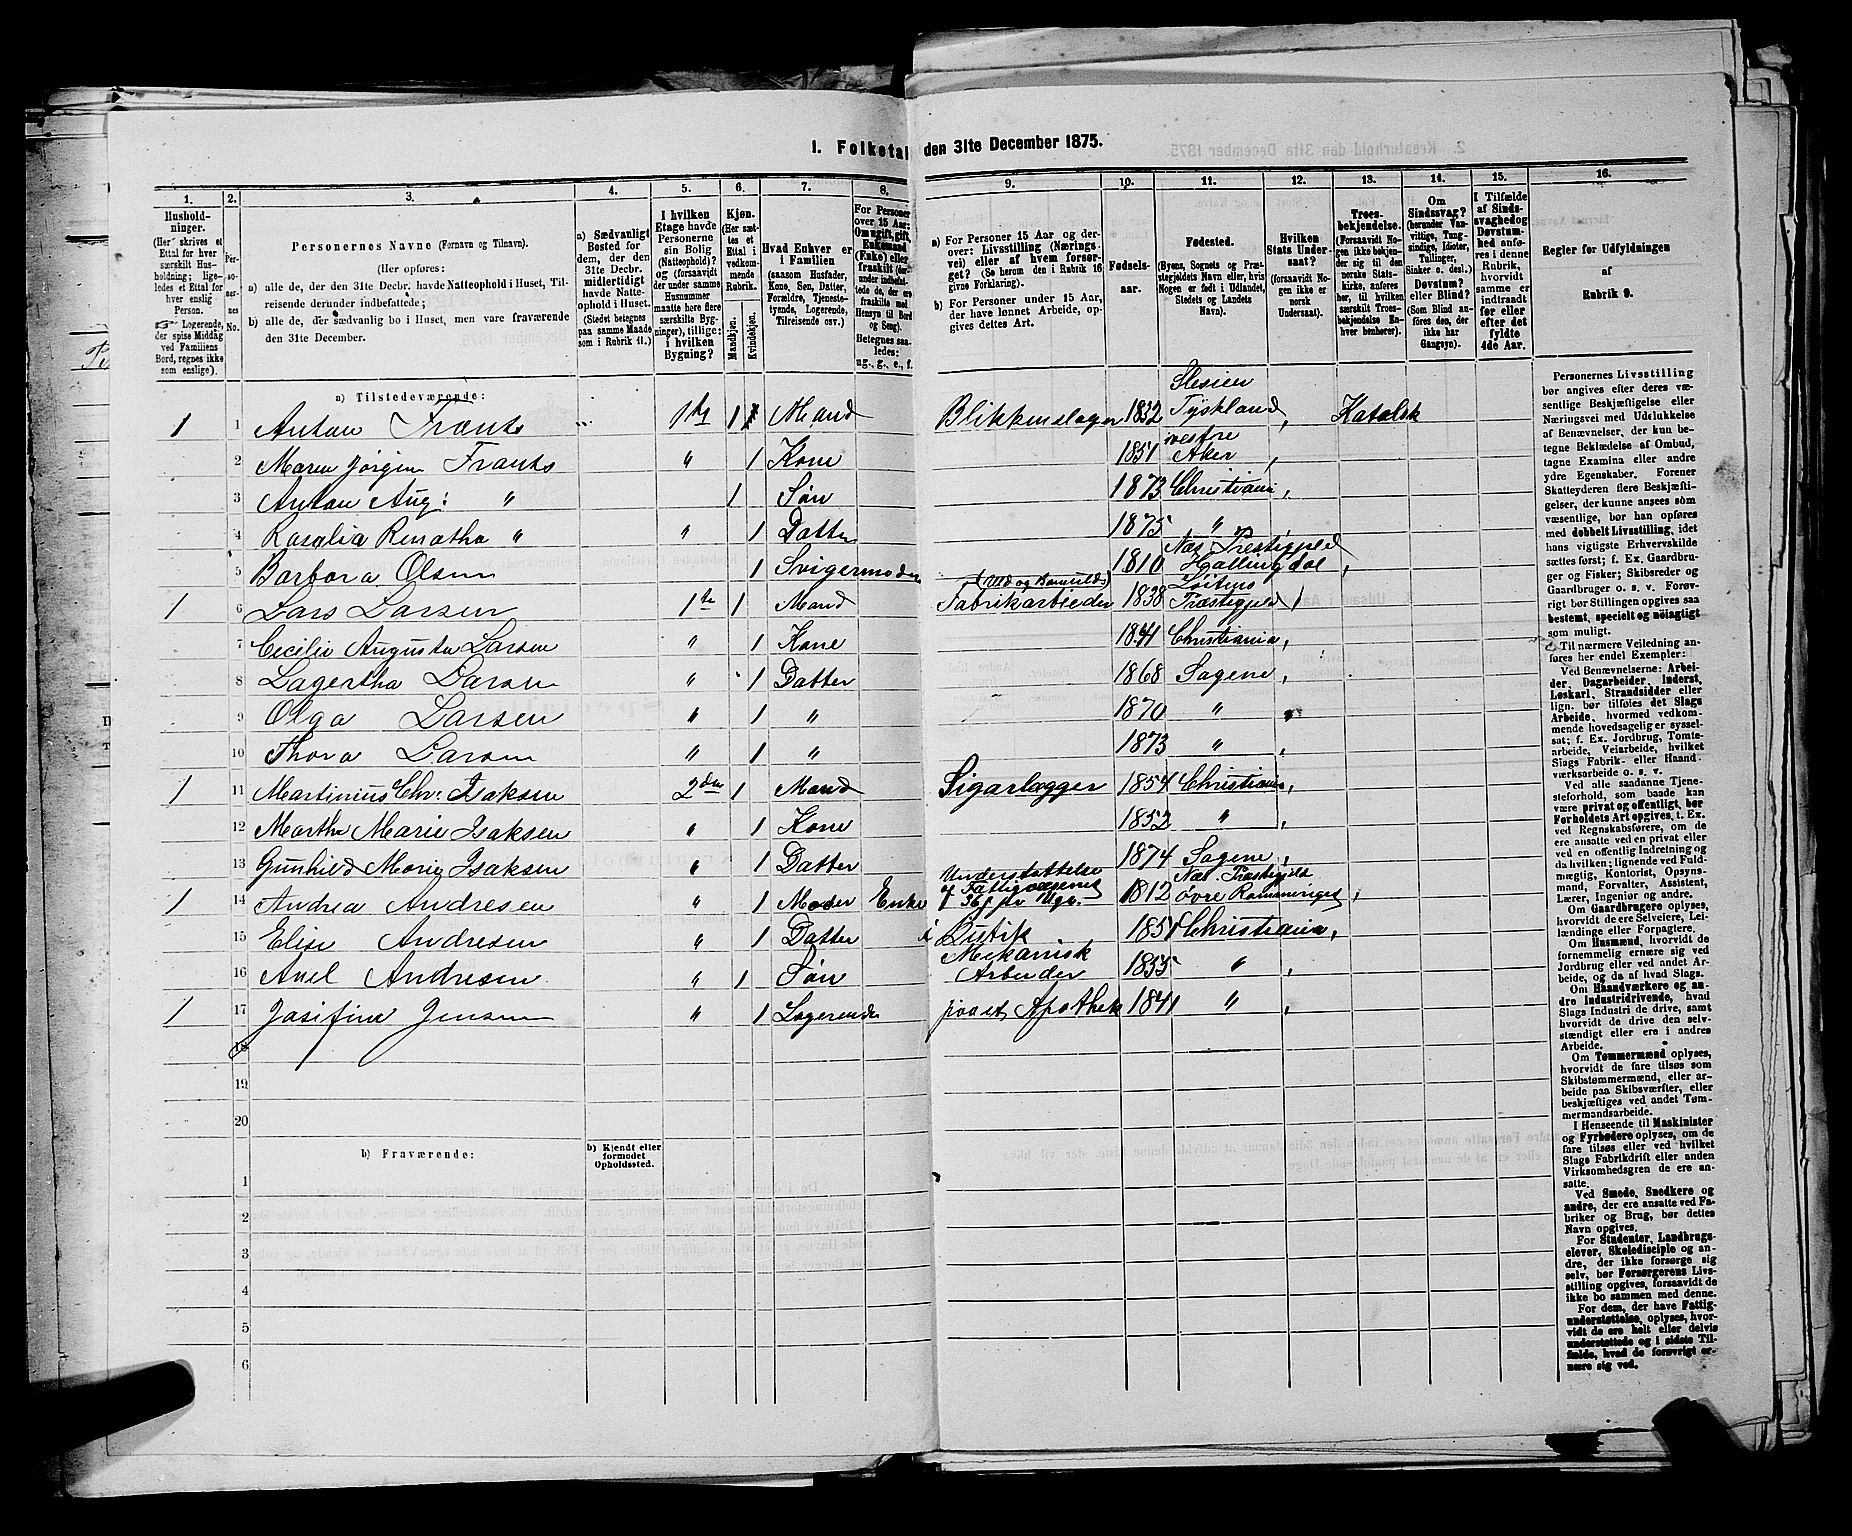 I. Folketal den 31te December 1875.
1. 2. 3. 4. 5. 6. 7. 8. 9. 10. 11. 12. 13. 14. 15. 16.
Hushold-
ninger.
(Her skrives et
Ettal for hver
særskilt Hus-
holdning; lige-
ledes et Ettal for
hver enslig
Person.
☞ Logerende,
der spise Middag
ved Familiens
Bord, regnes ikke
som enslige).
Per-
so-
ner-
nes
No.
Personernes Navne (Fornavn og Tilnavn).
(Her opføres:
a) alle de, der den 31te Decbr. havde Natteophold i Huset, Til-
reisende derunder indbefattede;
b) alle de, der sædvanlig bo i Huset, men vare fraværende
den 31te December.
a) Sædvanligt
Bosted for
dem, der den
31te Decbr.
midlertidigt
havde Natte-
ophold i Huset.
(Stedet betegnes
paa samme Maade
som i Rubrik 11.)
I hvilken
Etage havde
Personerne
sin Bolig
(Natteophold)?
og (forsaavidt
der under samme
Husnummer
maatte høre flere
særskilte Byg-
ninger), tillige:
i hvilken
Bygning?
Kjøn.
(Her sæt-
tes et
Ettal i
vedkom-
mende
Rubrik.
Mandkjøn.
Kvindekjøn.
Hvad Enhver er
i Familien
(saasom Husfader,
Kone, Søn, Datter,
Forældre, Tjeneste-
tyende, Logerende,
Tilreisende osv.)
For Personer
over 15 Aar:
Om ugift, gift,
Enkemand
(Enke) eller
fraskilt (der-
under indbefat-
tede de, der ere
fraskilte med
Hensyn til Bord
og Seng).
Betegnes saa-
ledes:
ug., g., e., f.
a) For Personer 15 Aar og der-
over: Livsstilling (Nærings-
vei) eller af hvem forsør-
get? (Se herom den i Rubrik 16
givne Forklaring).
b) For Personer under 15 Aar,
der have lønnet Arbeide, op-
gives dettes Art.
Fødsels-
aar.
Fødested.
(Byens, Sognets og Præ-
stegjeldets Navn eller, hvis
Nogen er født i Udlandet,
Stedets og Landets
Navn).
Hvilken
Stats Under-
saat?
(forsaavidt No-
gen ikke er
norsk
Undersaat).
Troes-
bekjendelse.
(Forsaavidt No-
gen ikke bekjen-
der sig til den
norske Stats-
kirke, anføres
her, til hvilken
særskilt Troes-
bekjendelse En-
hver henhører).
Om
Sindssvag?
(herunder Van-
vittige, Tung-
sindige, Idioter,
Tullinger,
Sinker o. desl.)
Døvstum?
eller Blind?
(Som Blind an-
føres den, der
ikke har
Gangsyn).
I Tilfælde
af Sinds-
svaghed og
Døvstum-
hed anfø-
res i denne
Rubrik,
hvorvidt
samme er
indtraadt
før eller
efter det
fyldte
4de Aar.
Regler for Udfyldningen
af
Rubrik 9.
a) Tilstedeværende:
1 1 Anton Frants 1ste 1 Mand Blikkenslager 1832 Slesien Tyskland, Katolsk
2 Maren Jørgin Frants " 1 Kone 1851 vestre Aker,
3 Anton Aug: " 1 Søn 1873 Christiania,
4 Rosalia Renatha " " 1 Datter 1875 " ,
5 Barbora Olsen 1 Svigermoder 1810 Næs Prestegjeld Hallingdal,
1 6 Lars Larsen 1ste 1 Mand (Uld og Bomulds) Fabrikarbeider 1838 Løitens Præstegjeld
7 Cecilie Augusta Larsen " 1 Kone 1841 Christiania,
8 Lagertha Larsen " 1 Datter 1868 Sagene,
9 Olga Larsen " 1 " 1870 " ,
10 Thora Larsen " 1 " 1873 " ,
1 11 Martinius Chr. Isaksen 2den 1 Mand Sigarlægger 1854 Christiania,
12 Martha Marie Isaksen " 1 Kone 1852 " ,
13 Gunhild Marie Isaksen " 1 Datter 1874 Sagene,
1 14 Andrea Andresen " 1 Moder Enke Understøttelse af Fattigvæsenet 1812 Næs Præstegjeld øvre Romerriget,
15 Elise Andresen " 1 Datter i Butik 1851 Christiania,
16 Axel Andresen " 1 Søn Mekanisk Arbeider 1855 " ,
1 17 Josifine Jensen " 1 Logerende paa et Apothek 1841 " ,
18
19
20
b) Fraværende:
b) Kjendt eller
formodet
Opholdssted.
1
2
3
4
5
6
Personernes Livsstilling
bør angives efter deres væ-
sentlige Beskjæftigelse eller
Næringsvei med Udelukkelse
af Benævnelser, der kun be-
tegne Beklædelse af Ombud,
tagne Examina eller andre
ydre Egenskaber. Forener
Skatteyderen flere Beskjæfti-
gelser, der kunne ansees som
væsentlige, bør han opføres
med dobbelt Livsstilling, idet
hans vigtigste Erhvervskilde
sættes først; f. Ex. Gaardbru-
ger og Fisker; Skibsreder og
Gaardbruger o. s. v. Forøv-
rigt bør Stillingen opgives saa
bestemt, specielt og nøiagtigt
som muligt.
Til nærmere Veiledning an-
føres her endel Exempler:
Ved Benævnelserne: Arbei-
der, Dagarbeider, Inderst,
Løskarl, Strandsidder eller
lign. bør tilføies det Slags
Arbeide, hvormed vedkom-
mende hovedsagelig er syssel-
sat; f. Ex. Jordbrug, Tomte-
arbeide, Veiarbeide, hvilket
Slags Fabrik- eller Haand-
værksarbeide o. s. v.
Ved alle saadanne Tjene-
steforhold, som baade kan
være privat og offentligt, bør
Forholdets Art opgives, t. Ex.
ved Regnskabsførere, om de
ere ansatte ved en privat eller
ved en offentlig Indretning og
da hvilken; lignende ved Fuld-
mægtig, Kontorist, Opsyns-
mand, Forvalter, Assistent,
Lærer, Ingeniør og andre.
Om Gaardbrugere oplyses,
hvorvidt de ere Selveiere, Lei-
lændinge eller Forpagtere.
Om Husmænd, hvorvidt de
fornemmelig ernære sig ved
Jordbrug eller ved andet Ar-
beide, og da af hvad Slags.
Om Haandværkere og an-
dre Industridrivende, hvad
Slags Industri de drive, samt
hvorvidt de drive den selv-
stændigt eller ere i andres
Arbeide.
Om Tømmermænd oplyses,
hvorvidt de fare tilsøs som
Skibstømmermænd, eller ar-
beide paa Skibsværfter, eller
beskjæftiges ved andet Tøm-
mermandsarbeide.
I Henseende til Maskinister
og Fyrbødere oplyses, om de
fare tilsøs eller ved hvilket
Slags Fabrikdrift eller anden
Virksomhedsgren de ere an-
satte.
Ved Smede, Snedkere og
andre, der ere ansatte ved Fa-
briker og Brug, bør dettes
Navn opgives.
For Studenter, Landbrugs-
elever, Skoledisciple og an-
dre, der ikke forsørge sig
selv, bør Forsørgerens Livs-
stilling opgives, forsaavidt de
ikke bo sammen med denne.
For dem, der have Fattig-
understøttelse, oplyses, hvor-
vidt de ere helt eller delvis
understøttede og i sidste Til-
fælde, hvad de forøvrigt er-
nære sig ved.